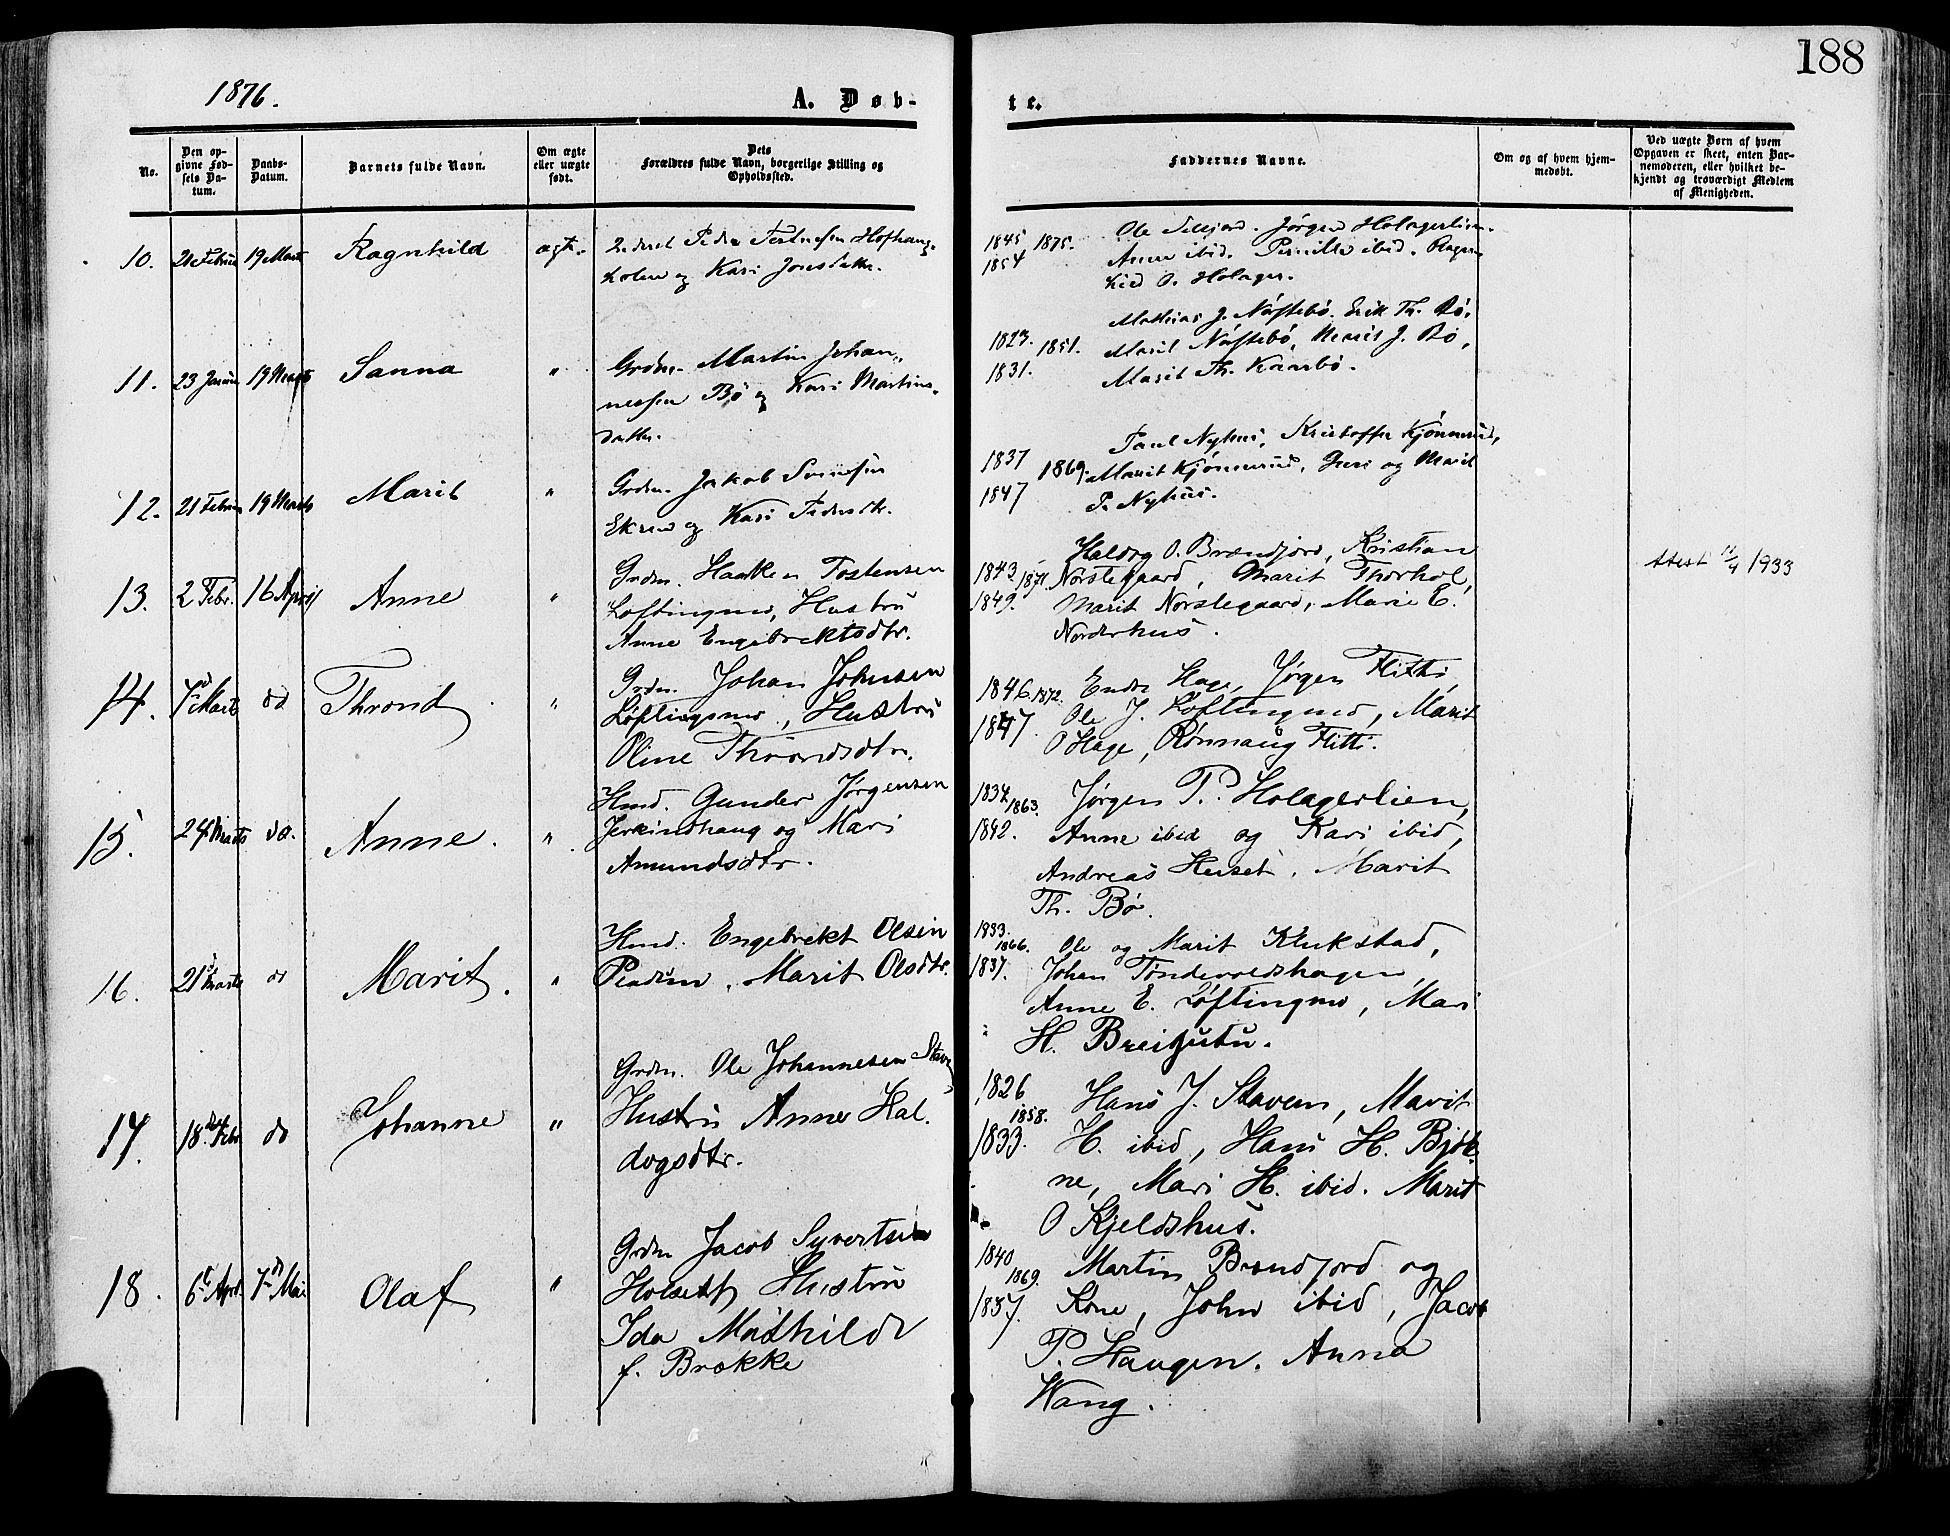 188
1876.
A. Døb-
te.
No.
Den op-
givne Fød-
sels Da-
tum.
Daabs-
Datum.
Barnets fulde Navn.
Om ægte
eller uægte
født.
Dets
Forældres fulde Navn, borgerlige Stilling og
Opholdssted.
Faddernes Navne.
Om og af hvem hjem-
medøbt.
Ved uægte Børn af hvem
Opgaven er skeet, enten Bar-
nemoderen, eller hvilket be-
kjendt og troværdigt Medlem
af Menigheden.
10. 21 Februar 19 Marts Ragnhild ægte.
Peder Hofhaug
holen og Kari Jonsdatter.
1845 1875.
1854
Ole Jørgen Holagerlien.
Anne ibid. Pernille ibid. Ragn
hild O. Holager.
11. 23 Januar 19 Marts Sanna "
Grdm. Martin Johan-
nessen Bø og Kari Martins-
datter.
1823. 1851.
1831.
Mathias J. Næstebø, Erik Th. Bø,
Marit Næstebø, Marit J. Bø,
Marit Th. Kaasbø.
12. 21 Februar 19 Marts Marit "
Grdm. Jakob
Ekren og Kari Pedersdtr.
1837 1869.
1847
Paul Nyhus, Kristoffer Kjønnerud,
Marit Kjønnerud, Guri og Marit
P. Nyhus.
13. 2 Febr. 16 April Anne "
Grdm. Haaken Tostensen
Løftingsmo, Hustru
Anne Engebrektsdtr.
1843 1871.
1849.
Haldog O. Brændjord, Kristian
Norstegaard, Marit Thorhol,
Marit Norstegaard, Marie E.
Norderhus.
Attest 11/4 1933
14. 7d Marts do Thrond "
Grdm. Johan Johnsen
Løftingsmo, Hustru
Oline Throndsdtr.
1846. 1872.
1847.
Endre Hage, Jørgen Flitti,
Ole J. Løftingsmo, Marit
O Hage, Rønnaug Flitti.
15. 24 Marts do. Anne. "
Hmd. Gunder Jørgensen
Jerkindhaug og Mari
Amundsdtr.
1834 1863.
1842.
Jørgen P. Holagerlien,
Anne ibid og Kari ibid,
Andreas Huset, Marit
Th. Bø.
16. 21d Marts do Marit. "
Hmd. Engebrekt Olsen
Pladsen, Marit Olsdtr.
1833. 1866.
1837.
Ole og Marit Klukstad,
Johan Tøndevoldshagen,
Anne E. Løftingsmo, Mari
H. Breijutu.
17. 18de Febr do Johanne "
Grdm. Ole Johannesen Stavem
Hustru Anne Hal-
dogsdtr.
1826 1858.
1833.
Hans J. Stavem, Marit
H. ibid, Hans H. Bjøk-
ne, Mari H. ibid. Marit
O Kjeldshus.
18. 6t April 7d Mai Olaf "
Grdm Jacob Syvertsen
Holseth Hustru
Ida Mathilde
f. Brække
1840 1869.
1837.
Martin Brændjord og
Kone, John ibid, Jacob
P. Haugen. Anna
Wang.